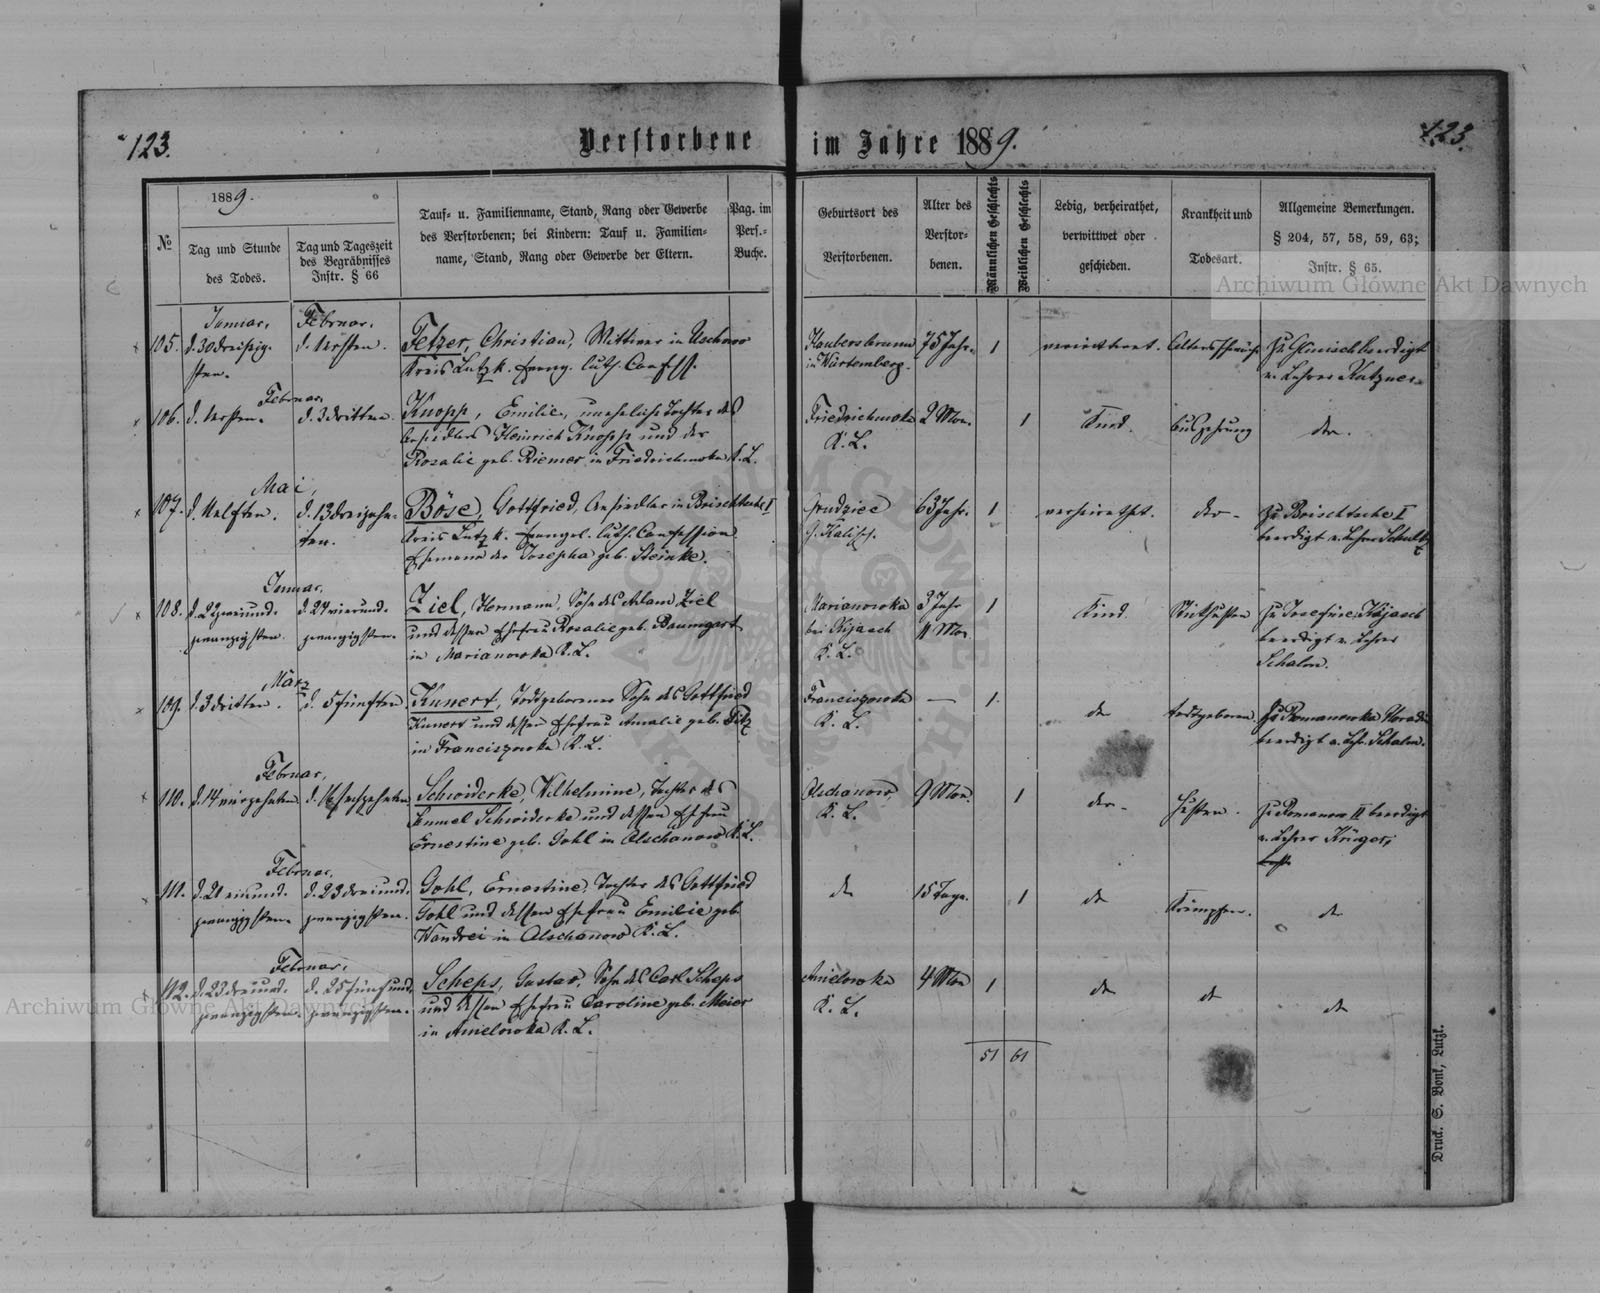 123.
Verstorbene im Jahre 1889.
123.
№
1889.
Tag und Stunde
des Todes.
Tag und Tageszeit
des Begräbnisses
Instr. § 66
Tauf- u. Familienname, Stand, Rang oder Gewerbe
des Verstorbenen; bei Kindern: Tauf u. Familien-
name, Stand, Rang oder Gewerbe der Eltern.
Pag. im
Pers.-
Buche.
Geburtsort des
Verstorbenen.
Alter des
Verstor-
benen.
Männlichen Geschlechts
Weiblichen Geschlechts
Ledig, verheirathet,
verwittwet oder
geschieden.
Krankheit und
Todesart.
Allgemeine Bemerkungen.
§ 204, 57, 58, 59, 63;
Instr. § 65.
Archiwum Główne Akt Dawnych
105.
Januar,
d. 30 dreißig-
sten.
Februar,
d. Ersten.
Fetzer, Christian, Wittwer in
Kreis Lutzk. evang. luth. Confess.
in Würtemberg.
75 Jahr.
1
verwittwet.
Altersschwäche
beerdigt
v. Lehrer
106.
Februar,
d. Ersten.
d. 3 dritten.
Knopp, Emilie, uneheliche Tochter des
Ansiedlers Heinrich Knopp und der
Rosalie geb. Riemer in Friedrichowka K. L.
Friedrichowka
K. L.
2 Mon.
1
Kind.
Auszehrung
dto.
107.
Mai,
d. Elften.
d. 13 dreizehn-
ten.
Böse, Gottfried, Ansiedler in Boischtsche I
Kreis Lutzk. Evangel. luth. Confession
Ehemann der Josepha geb. Steinke.
Grudziec
G. Kalisch.
63 Jahr.
1
verheirathet.
dto.
Zu Boischtsche I
beerdigt v. Lehrer
108.
Januar,
d. 22 zweiund-
zwanzigsten.
d. 24 vierund-
zwanzigsten.
Ziel, Hermann, Sohn des Adam Ziel
und dessen Ehefrau Rosalie geb. Baumgart
in Marianowka K. L.
Marianowka
bei Kijasch
K. L.
3 Jahr
11 Mon
1
Kind
Stickhusten
Zu Josefine Kijasch
beerdigt v. Lehrer
Schalm.
109.
März
d. 3 dritten.
d. 5 fünften
Kunert, Todtgeborener Sohn des Gottfried
Kunert und dessen Ehefrau Amalie geb.
in Franciszowka K. L.
Franciszowka
K. L.
—
1.
dto
todtgeboren
Zu Romanowka
beerdigt v. Lehr. Schalm.
110.
Februar,
d. 14 vierzehnten
d. 16 sechzehnten
Schwiderke, Wilhelmine, Tochter des
Samuel Schwiderke und dessen Ehefrau
Ernestine geb. Gohl in Olschanow K. L.
Olschanow,
K. L.
9 Mon.
1
dto.
Husten.
Zu Romanow II beerdigt
v. Lehrer Krüger,
111.
Februar,
d. 21 einund-
zwanzigsten.
d. 23 dreiund-
zwanzigsten.
Gohl, Ernestine, Tochter des Gottfried
Gohl und dessen Ehefrau Emilie geb.
Wandrei in Olschanow K. L.
dto
15 Tage.
1
dto
Krämpfen.
dto
112.
Februar,
d. 23 dreiund-
zwanzigsten.
d. 25 fünfund-
zwanzigsten.
Scheps, Gustav, Sohn des Carl Scheps
und dessen Ehefrau Caroline geb. Meier
in Amelowka K. L.
Amelowka
K. L.
4 Mon
1
dto
dto
dto
51 61
Archiwum Główne Akt Dawnych
Druck. S. Bonk, Lutzk.